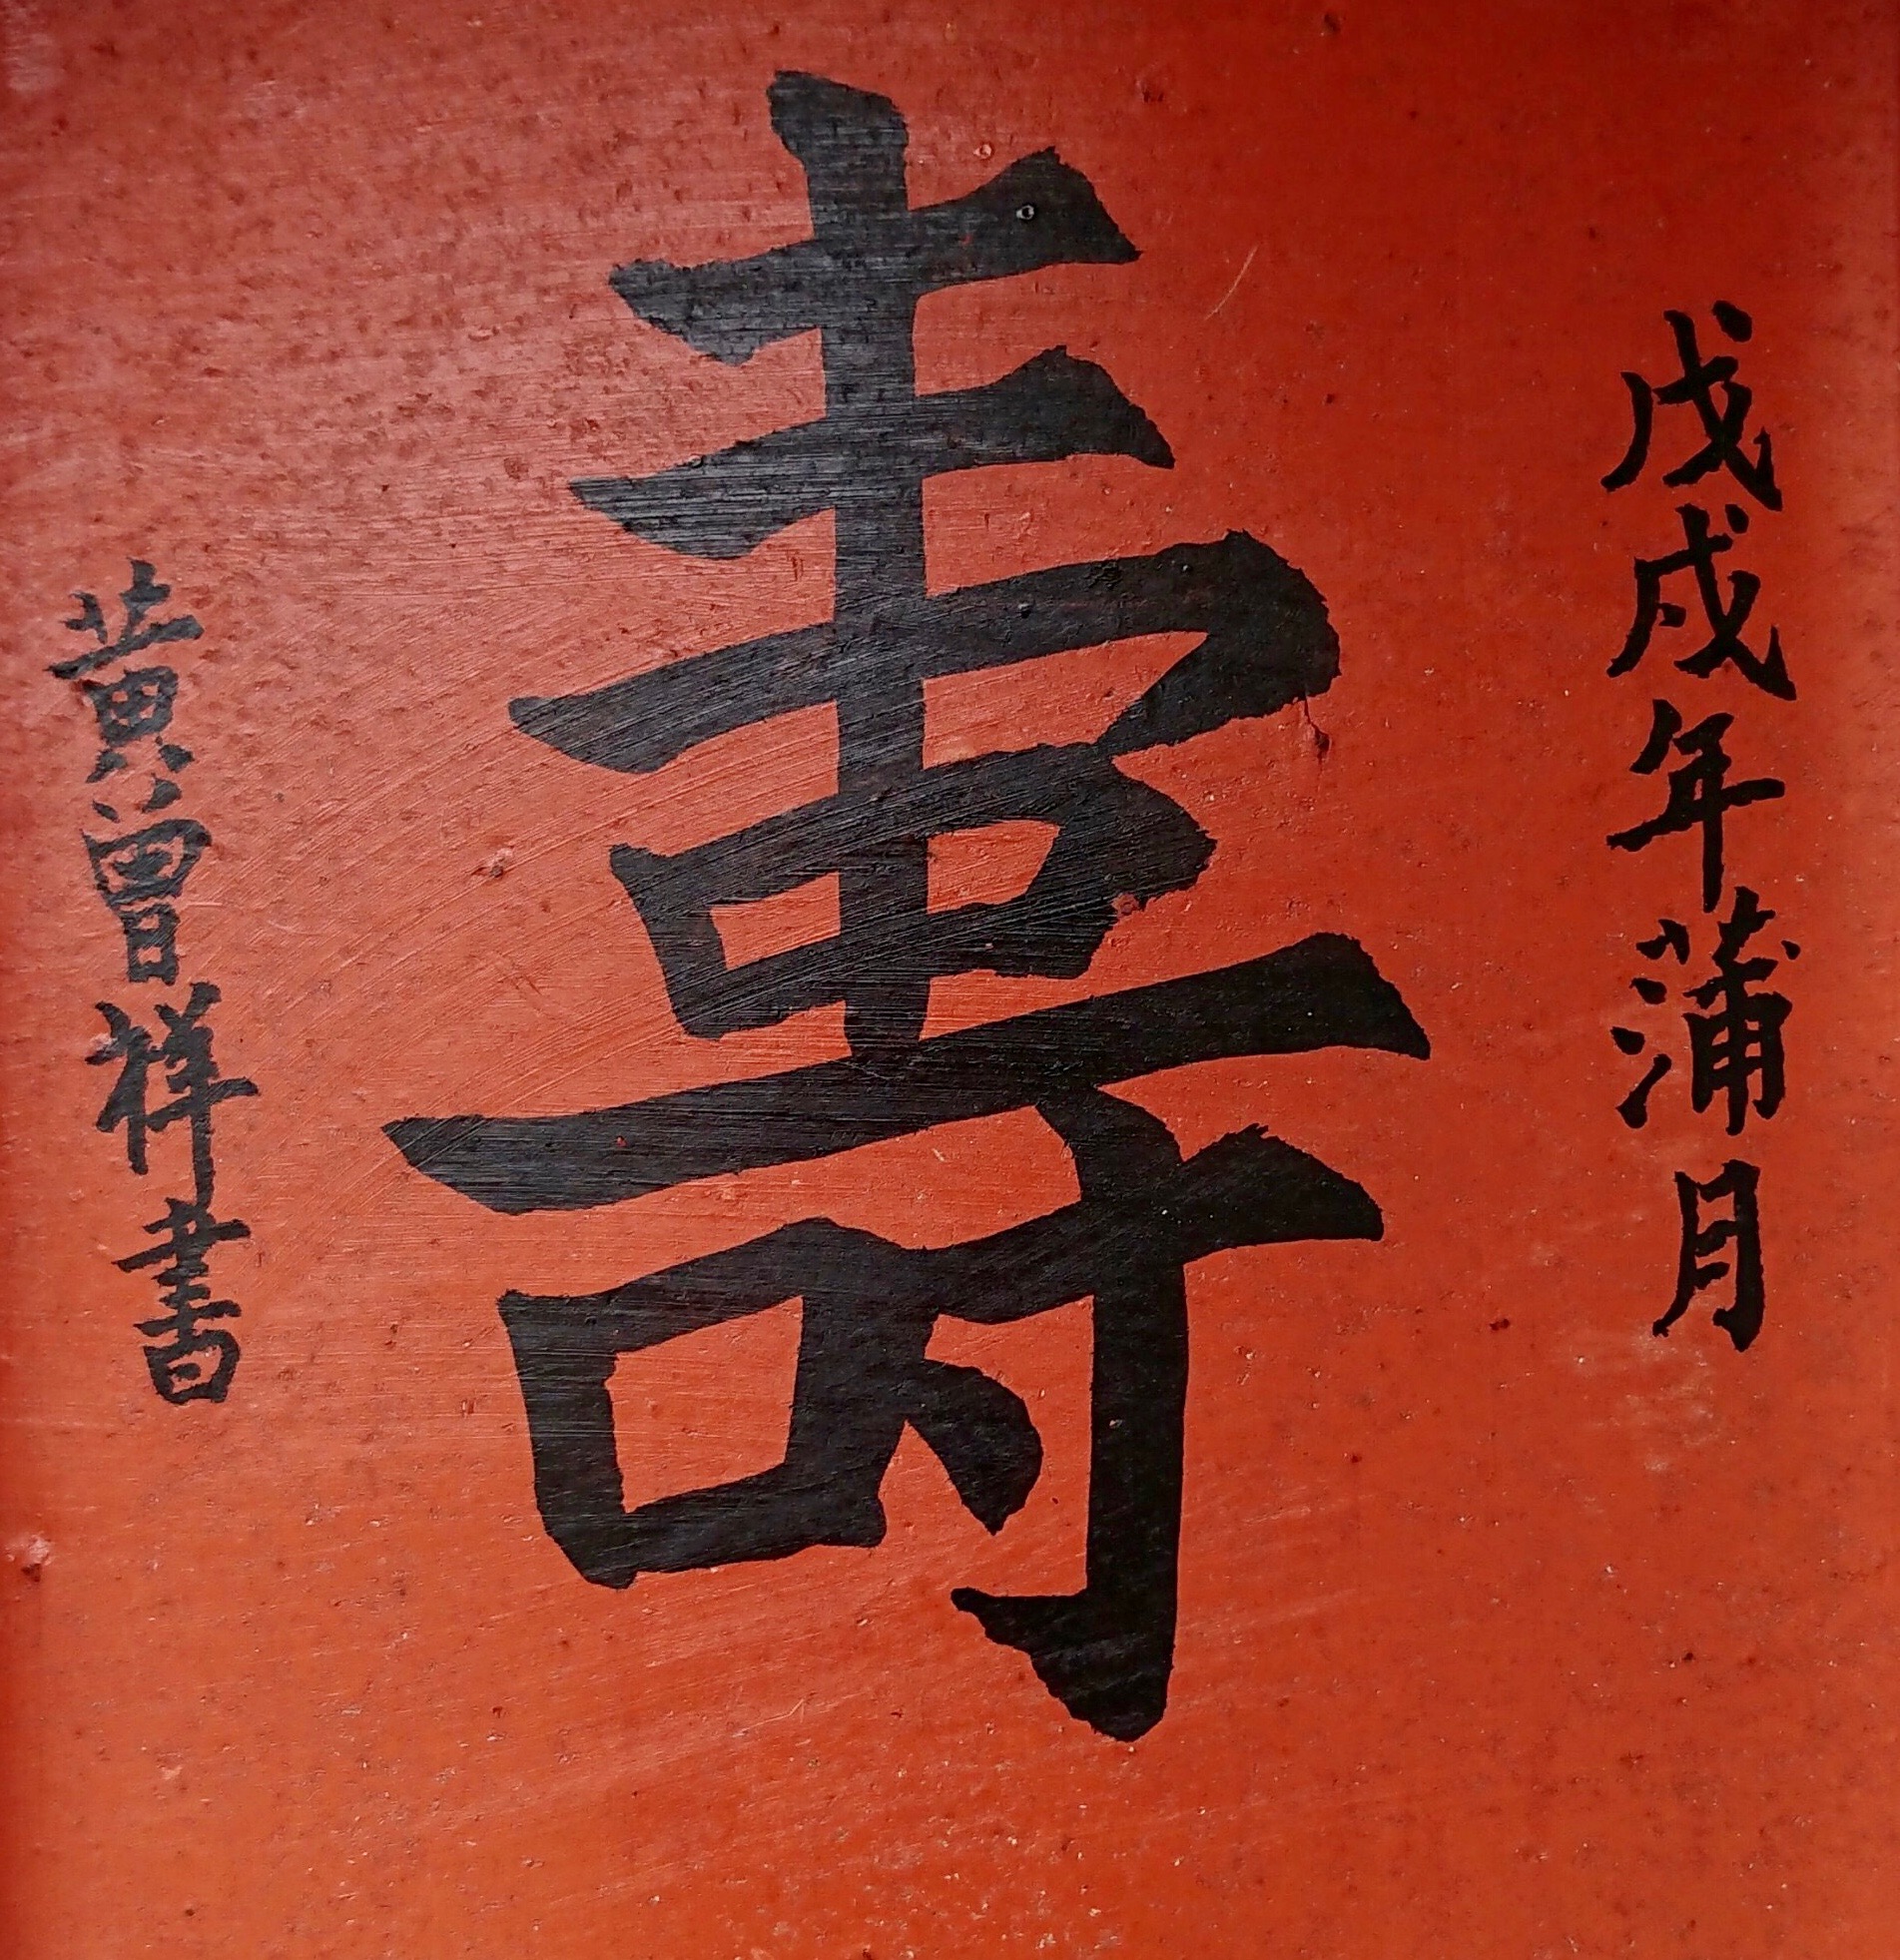 戊戌年蒲月
壽
黄曾祥書